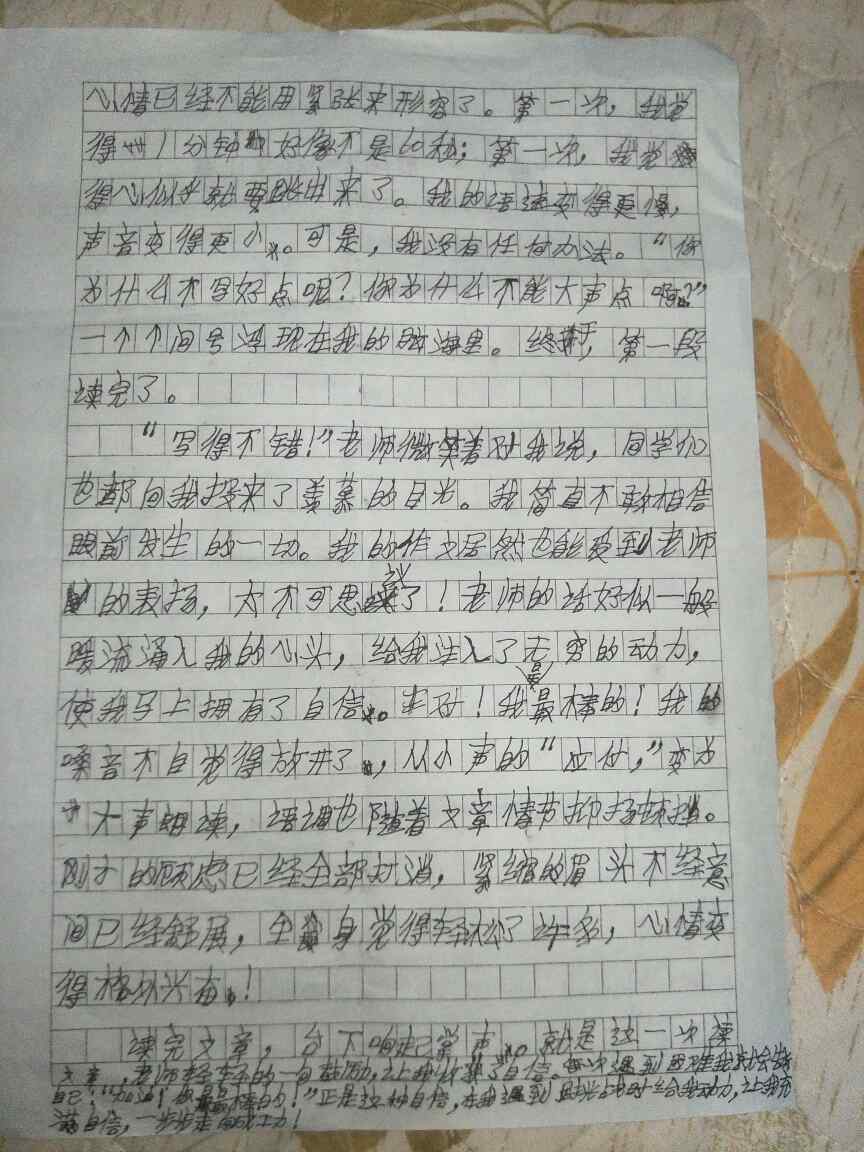 心情已经不能用紧张来形容了。第一次，我觉
得1分钟好像不是60秒；第一次，我觉
得心似乎就要跳出来了。我的语速变得更慢，
声音变得更小。可是，我没有任何办法。“你
为什么不写好点呢？你为什么不能大声点啊？”
一个个问号浮现在我的脑海里。终于，第一段
读完了。
“写得不错！”老师微笑着对我说，同学们
也都向我投来了羡慕的目光。我简直不敢相信
眼前发生的一切。我的作文居然也能受到老师
的表扬，太不可思议了！老师的话好似一般
暖流涌入我的心头，给我注入了无穷的动力，
使我马上拥有了自信。对！我是最棒的！我的
嗓音不自觉得放开了，从小声的“应付，”变为
大声朗读，语调也随着文章情节抑扬顿挫。
刚才的顾虑已经全部打消，紧缩的眉头不经意
间已经舒展，全身觉得轻松了许多，心情变
得格外兴奋！
读完文章，台下响起掌声。就是这一次读
文章，老师轻轻的一句鼓励，让我收获了自信。每次遇到困难我就会告诉
自己：“加油！你是最棒的！”正是这种自信，在我遇到困难时给我动力，让我充
满自信，一步步走向成功！